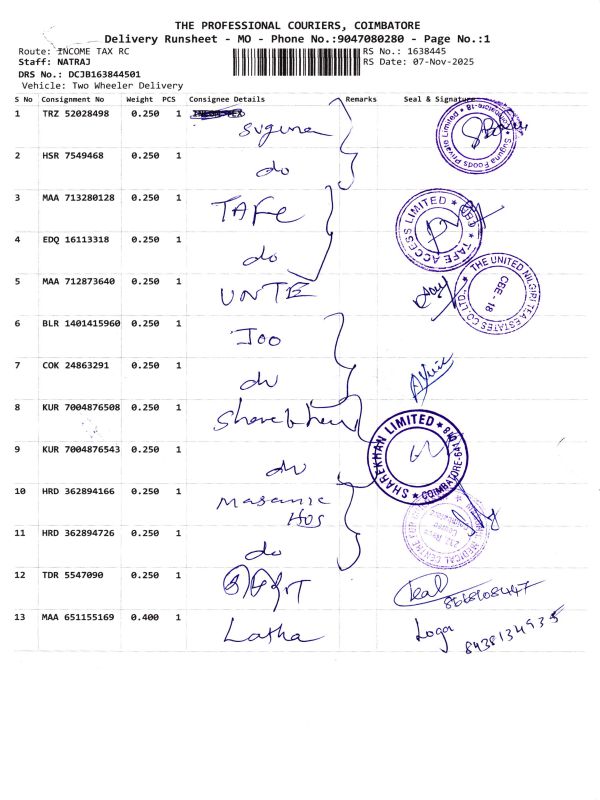 THE PROFESSIONAL COURIERS, COIMBATORE
Delivery Runsheet - MO - Phone No.:9047080280 - Page No.:1
Route: INCOME TAX RC
RS No.: 1638445
Staff: NATRAJ
RS Date: 07-Nov-2025
DRS No.: DCJB163844501
Vehicle: Two Wheeler Delivery
S No Consignment No Weight PCS Consignee Details Remarks Seal & Signature
1 TRZ 52028498 0.250 1 Suguna
Suguna Foods Private Limited
2 HSR 7549468 0.250 1 do
3 MAA 713280128 0.250 1 TAFE
TAFE ACCESS LIMITED
4 EDQ 16113318 0.250 1 do
5 MAA 712873640 0.250 1 UNTE
THE UNITED NILGIRI TEA ESTATES CO. LTD.
CBE - 18
6 BLR 1401415960 0.250 1 Joo
7 COK 24863291 0.250 1 do
8 KUR 7004876508 0.250 1 Sharekhan
SHAREKHAN LIMITED
COIMBATORE-641 018
9 KUR 7004876543 0.250 1 do
10 HRD 362894166 0.250 1
HOS
MEDICAL CENTRE
11 HRD 362894726 0.250 1 do
12 TDR 5547090 0.250 1
13 MAA 651155169 0.400 1 Latha
Loga
8438134935